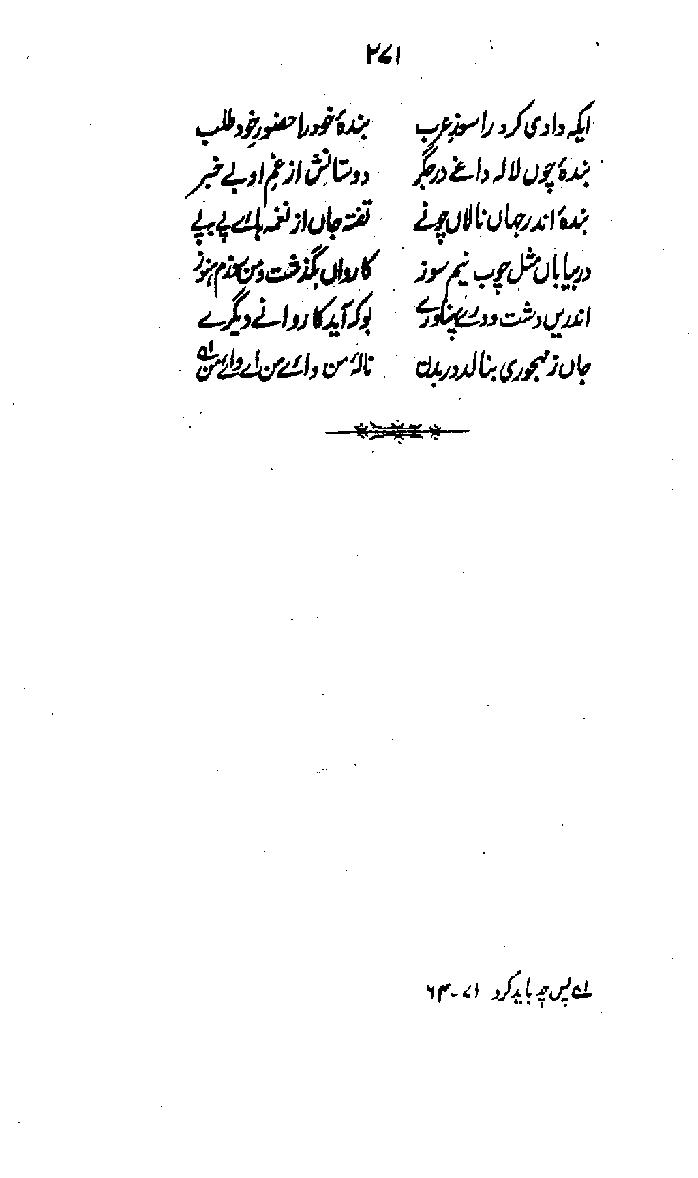 ۲۷۱
ایکہ دادی کرد را سوزِ عرب    بندۂ خود را حضورِ خود طلب
بندۂ چوں لالہ داغے در جگر    دوستانش از غمِ او بے خبر
بندۂ اندر جہاں نالاں چونے    تفتہ جاں از نغمہ ہاے پے بہ پے
در بیاباں مثل چوب نیم سوز    کارواں بگذشت و من سوزم ہنوز
اندریں دشت و درے پہناورے    بو کہ آید کاروانے دیگرے
جاں ز مہجوری بنالد در بدن    نالۂ من واے من اے واے من ؎۱
؎۱ پس چہ باید کرد ۷۱-۶۴